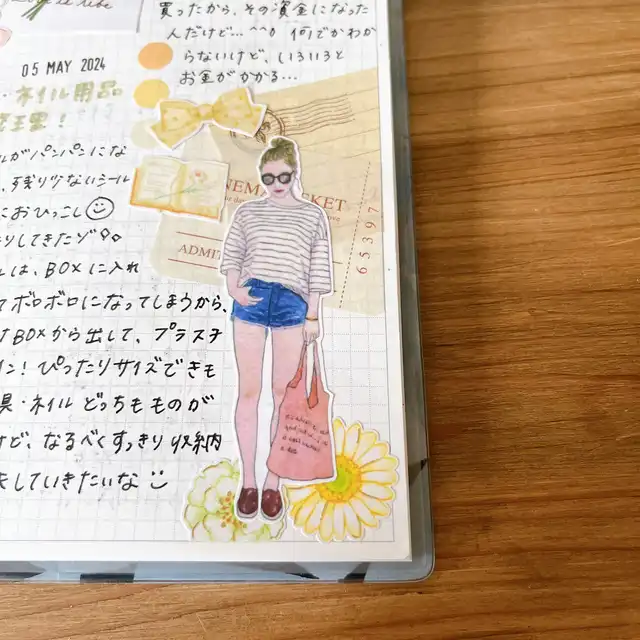 買ったから、その資金になった
んだけど…^^♪ 何でかわか
らないけど、いろいろと
お金がかかる…
05 MAY 2024
・ネイル用品
整理!
ルがパンパンにな
、残り少ないシール
におひっこし
りしてきたゾ
は、BOXに入れ
てボロボロになってしまうから、
BOXから出して、プラスチ
イン!ぴったりサイズできも
具・ネイル どっちもものが
けど、なるべくすっきり収納
していきたいな
NEMA TICKET
ADMIT
65397